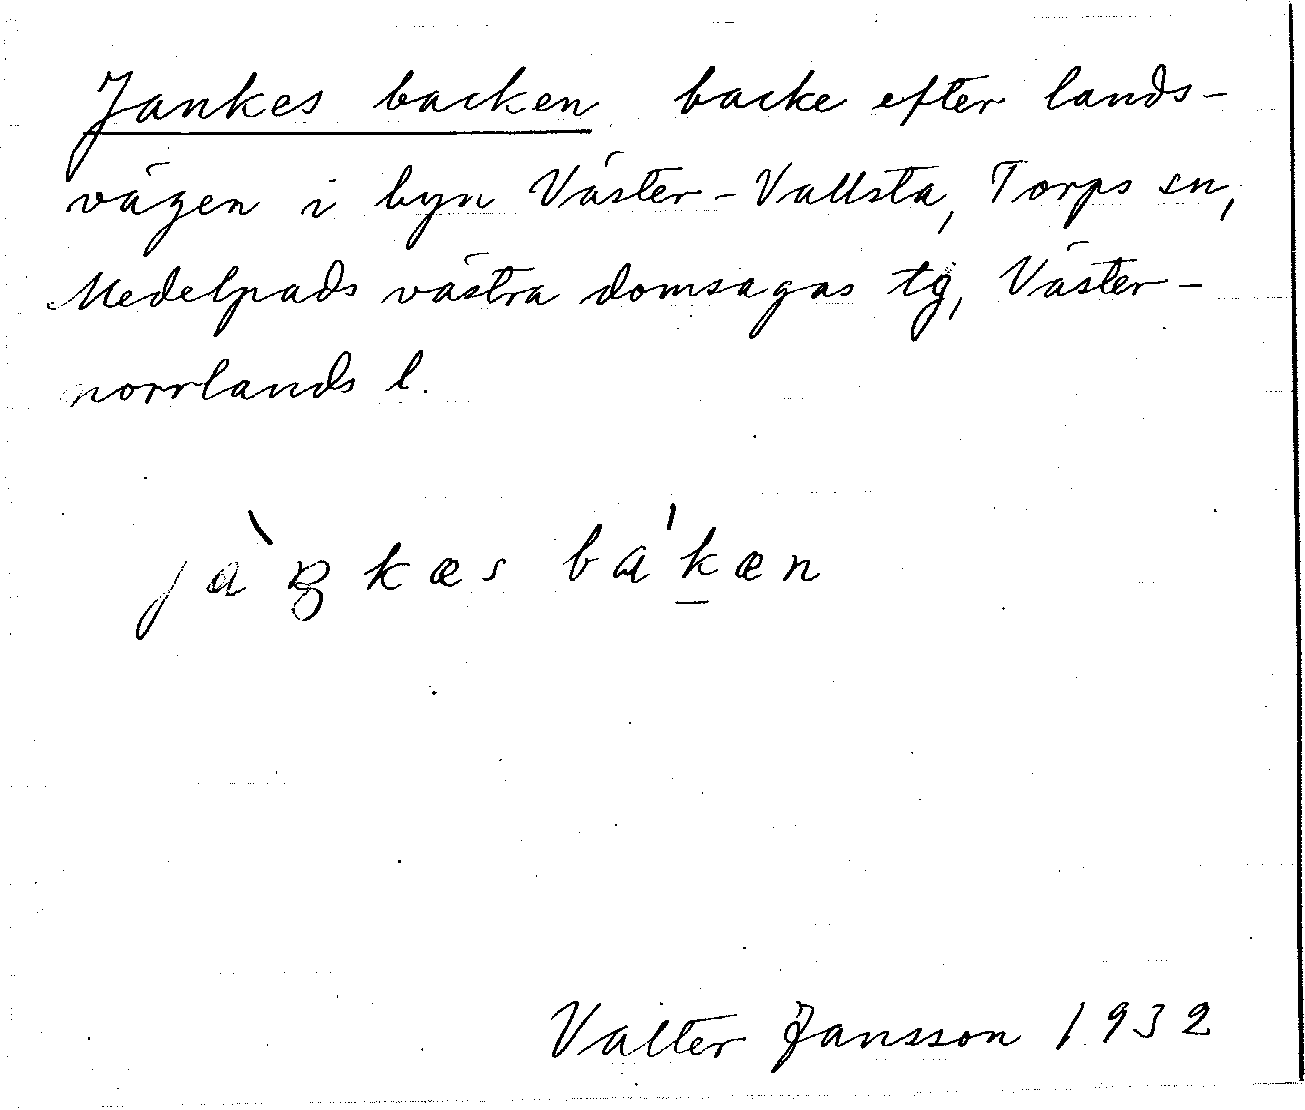 Jankes backen backe efter lands-
vägen i byn Väster-Vallsta, Torps sn,
Medelpads västra domsagas tg, Väster-
norrlands l.
jàŋkæs ba'k̲æn
Valter Jansson 1932